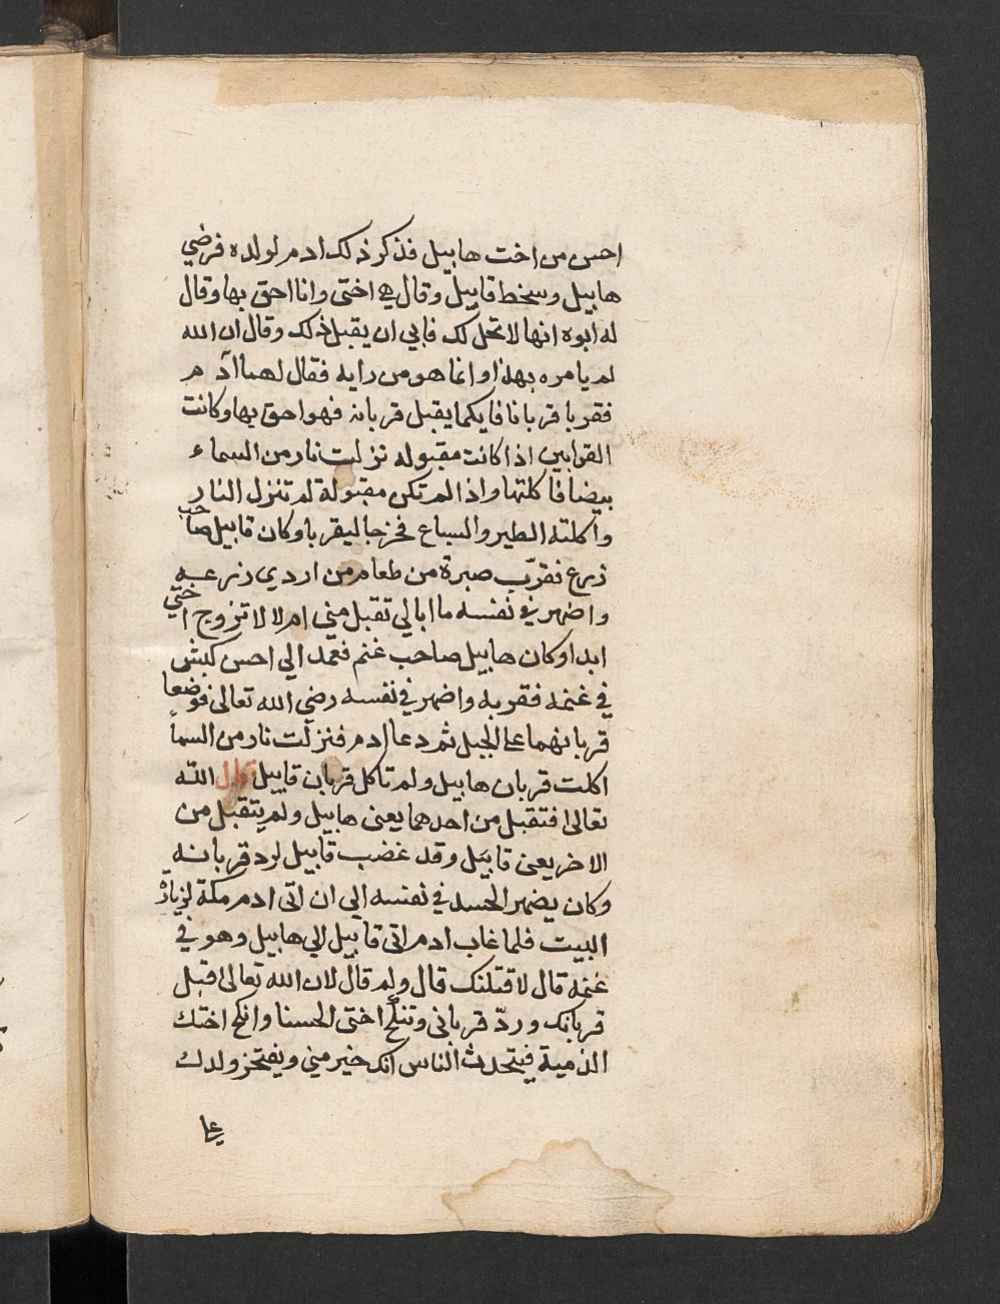 احسن من اخت هابيل فذكر ذلك ادم لولده فرضي
هابيل وسخط قابيل وقال هي اختى وانا احق بها وقال
له ابوه انها لا تحل لك فابي ان يقبل ذلك وقال ان الله
لم يامره بهذا وانما هو من رايه فقال لهما ادم
فقربا قربانا فايكما يقبل قربانه فهو احق بها وكانت
القرابين اذا كانت مقبوله نزلت نار من السماء
بيضا فاكلتها واذا لم تكن مقبولة لم تنزل النار
واكلته الطير والسباع فخرجا ليقربا وكان قابيل صاحب
زرع فقرّب صبرة من طعام من اردي زرعه
واضمر في نفسه ما ابالي تقبل مني ام لا لا تزوج اختي
ابدا وكان هابيل صاحب غنم فعمد الي احسن كبش
في غنمه فقربه واضمر في نفسه رضي الله تعالى فوضعا
قربانهما على الجبل ثم دعا ادم فنزلت نار من السمآ
اكلت قربان هابيل ولم تاكل قربان قابيل قال الله
تعالى فتقبل من احدهما يعنى هابيل ولم يتقبل من
الاخر يعنى قابيل وقد غضب قابيل لرد قربانه
وكان يضمر الحسد في نفسه الي ان اتى ادم مكة لزيارة
البيت فلما غاب ادم اتى قابيل الي هابيل وهو في
غنمه قال لاقتلنك قال ولم قال لان الله تعالى قبل
قربانك وردّ قرباني وتنكح اختى الحسنا وانكح اختك
الذمية فيتحدث الناس انك خير مني ويفتخر ولدك
على